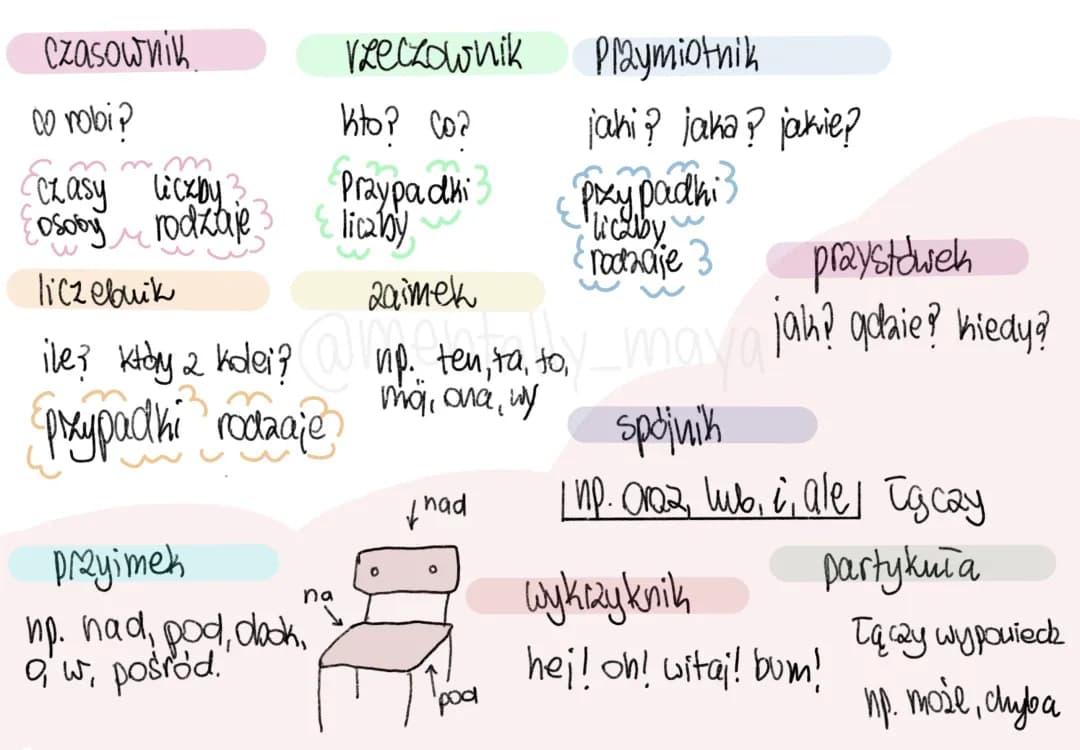 czasownik
co robi?
czasy liczby
osoby rodzaje
rzeczownik
kto? co?
Przypadki
liczby
Przymiotnik
jaki? jaka? jakie?
przypadki
liczby
rodzaje
liczebnik
ile? który z kolei?
przypadki rodzaje
zaimek
np. ten, ta, to,
mój, ona, wy
przysłówek
jak? gdzie? kiedy?
@mentally_maya
spójnik
np. oraz, lub, i, ale łączy
przyimek
np. nad, pod, obok,
o, w, pośród.
nad
na
pod
wykrzyknik
hej! oh! witaj! bum!
partykuła
łączy wypowiedz
np. może, chyba